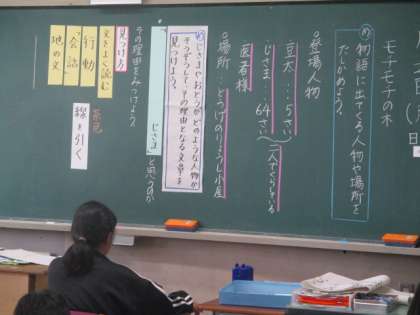 モチモチの木
め 物語に出てくる人物や場所を
たしかめよう。
登場人物
豆太…5さい
じさま…64さい
二人でくらしている
医者様
場所…とうげのりょうし小屋
め じさまやおとうがどのような人物か
そうぞうして、その理由となる文章を
見つけよう。
じさま
と思うのか
その理由をみつけよう
見つけ方
文をよく読む
行動
「会話」
地の文
線を引く